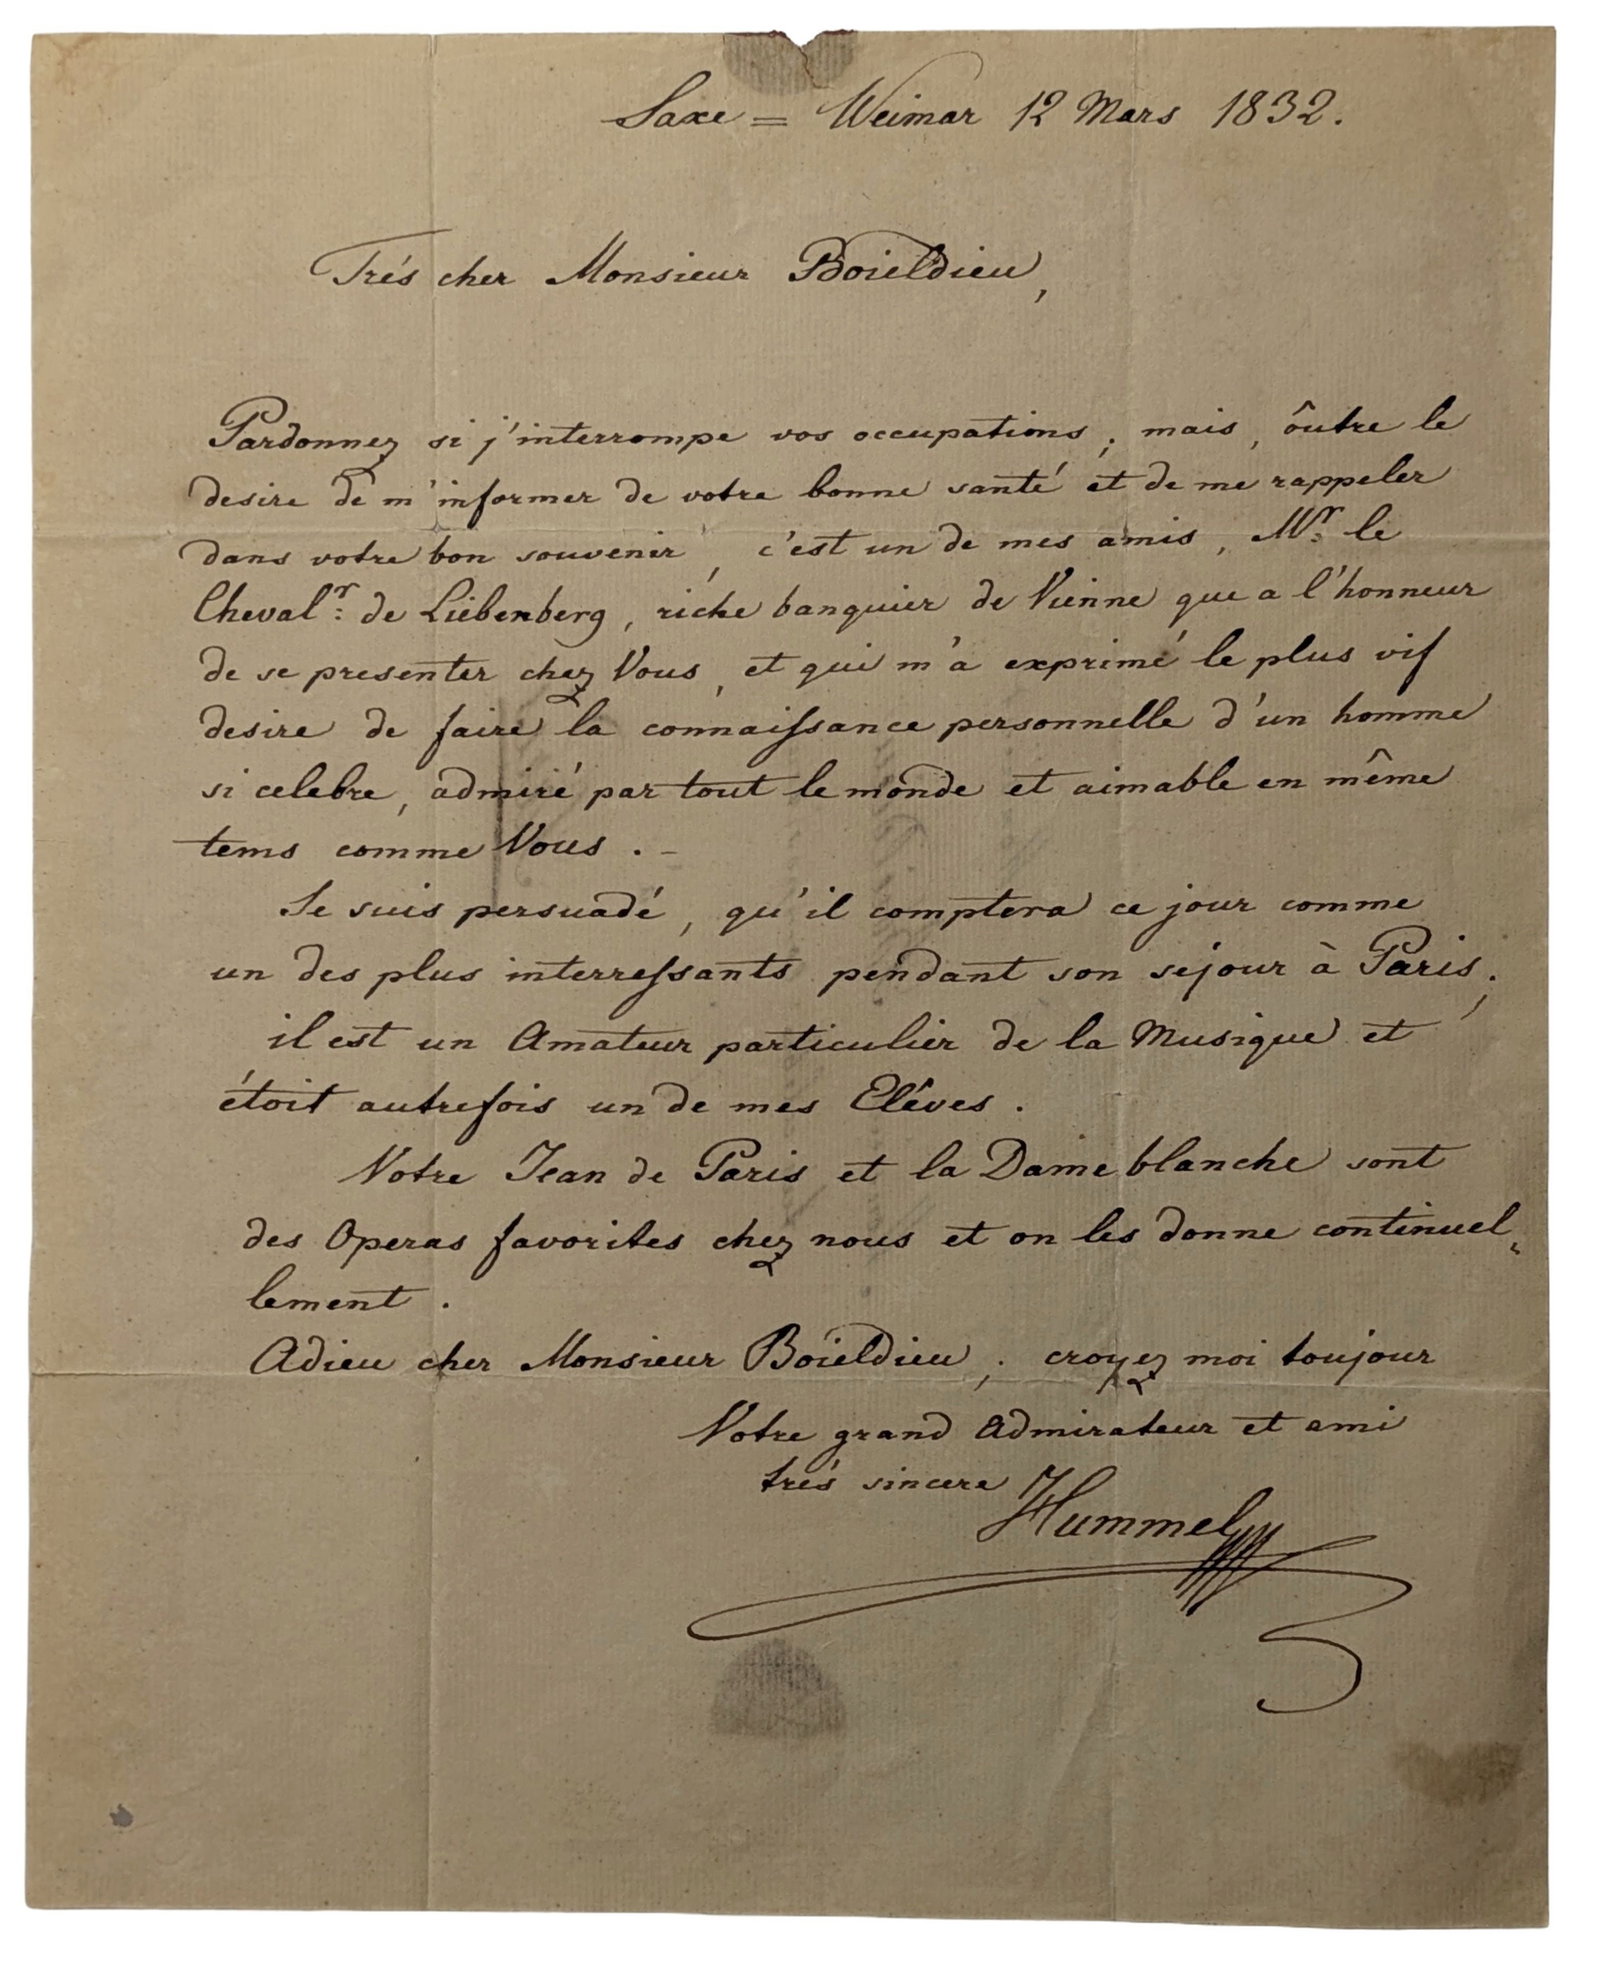 Saxe = Weimar 12 Mars 1832.
Trés cher Monsieur Boieldieu,
Pardonnez si j'interrompe vos occupations; mais, oûtre le
desire de m'informer de votre bonne santé et de me rappeler
dans votre bon souvenir, c'est un de mes amis, Mr: le
Chevalr: de Liebenberg, riche banquier de Vienne que a l'honneur
de se presenter chez Vous, et qui m'a exprimé le plus vif
desire de faire la connaifsance personnelle d'un homme
si celebre, admiré par tout le monde et aimable en même
tems comme Vous. –
Je suis persuadé, qu'il comptera ce jour comme
un des plus interrefsants pendant son sejour à Paris;
il est un Amateur particulier de la Musique et
étoit autrefois un de mes Eléves.
Votre Jean de Paris et la Dame blanche sont
des Operas favorites chez nous et on les donne continuel=
lement.
Adieu cher Monsieur Boieldieu; croyez moi toujour
Votre grand Admirateur et ami
trés sincere Hummel